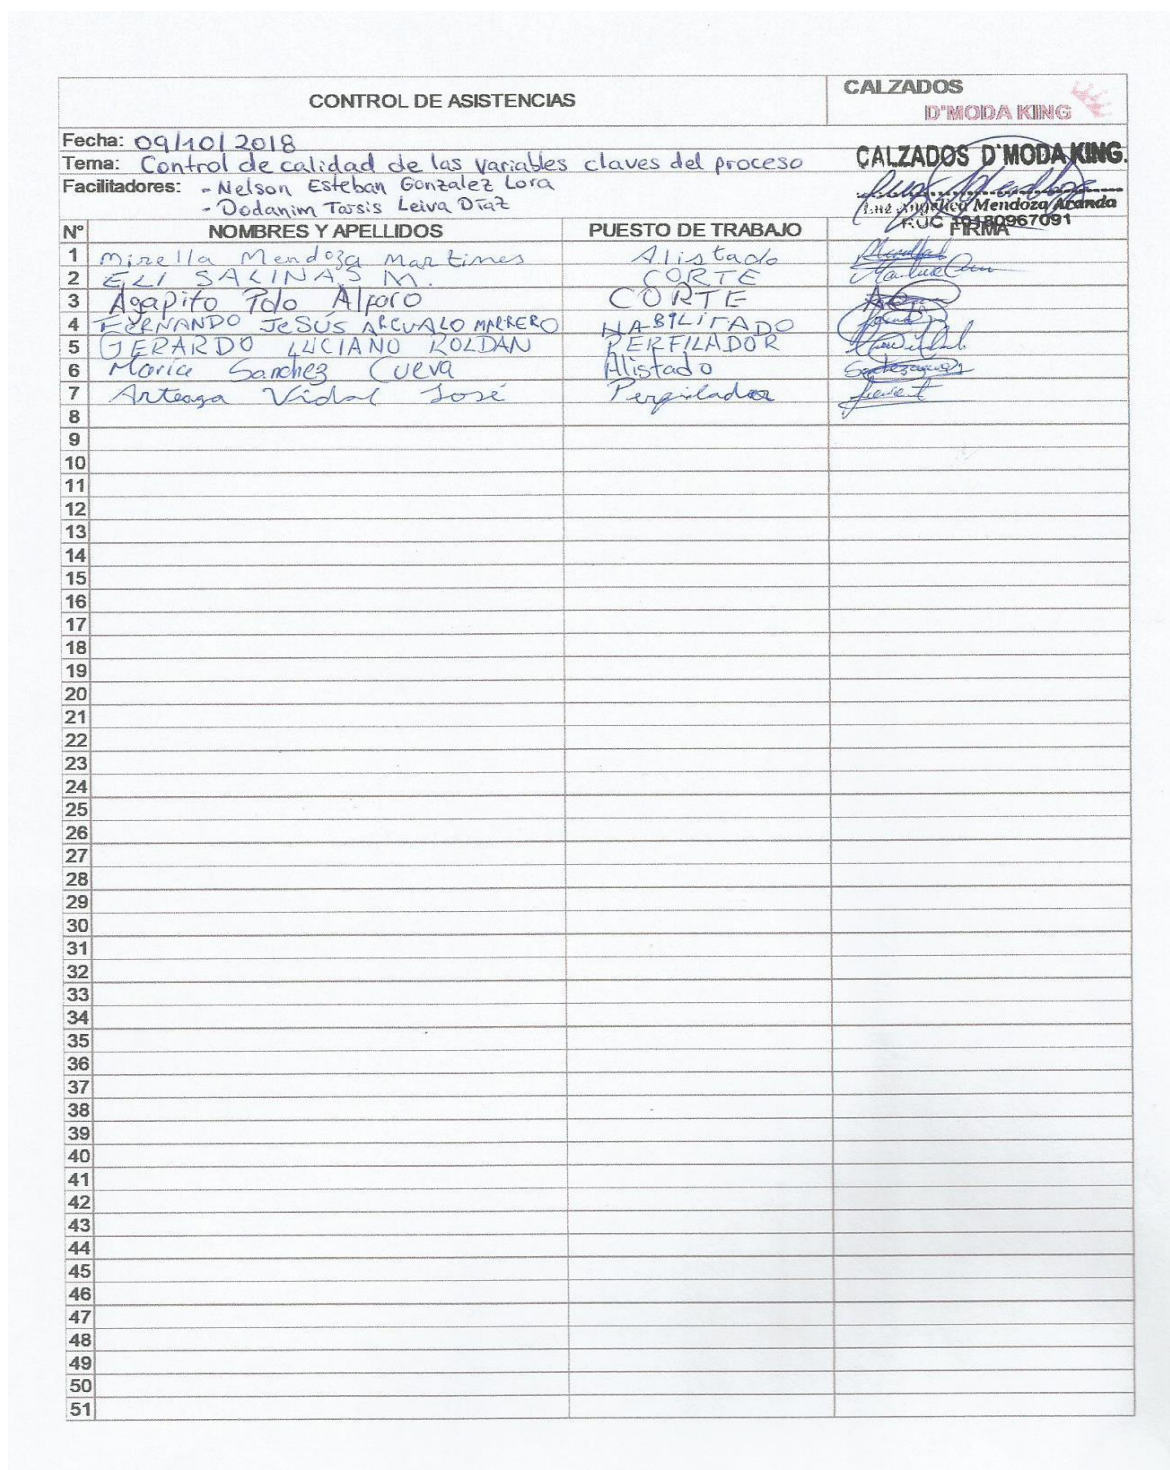 CONTROL DE ASISTENCIAS
CALZADOS
D'MODA KING
Fecha: 09/10/2018
Tema: Control de calidad de las variables claves del proceso
Facilitadores: - Nelson Esteban Gonzalez Lora
- Dodanim Tarsis Leiva Díaz
CALZADOS D'MODA KING.
Mendoza Aranda
RUC 10180967091
Nº NOMBRES Y APELLIDOS PUESTO DE TRABAJO FIRMA
1 Mirella Mendoza Martines Alistado
2 ELI SALINAS M. CORTE
3 Agapito Polo Alfaro CORTE
4 FERNANDO JESÚS AREVALO MARRERO HABILITADO
5 GERARDO LUCIANO ROLDAN PERFILADOR
6 Maria Sanchez Cueva Alistado
7 Arteaga Vidal José Perfilador
8
9
10
11
12
13
14
15
16
17
18
19
20
21
22
23
24
25
26
27
28
29
30
31
32
33
34
35
36
37
38
39
40
41
42
43
44
45
46
47
48
49
50
51